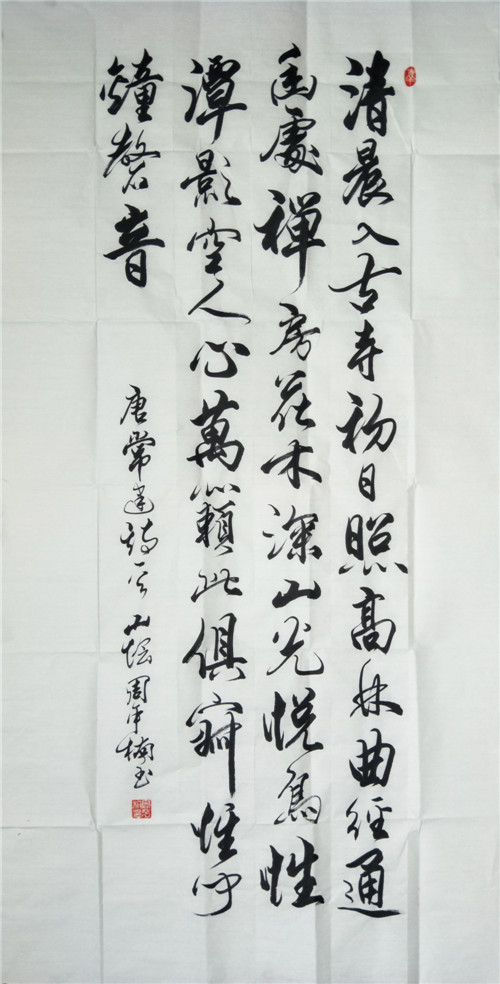 清晨入古寺初日照高林曲經通
幽處禪房花木深山光悅鳥性
潭影空人心萬籟此俱寂惟聞
鐘磬音
唐常建詩一首 周平楠书